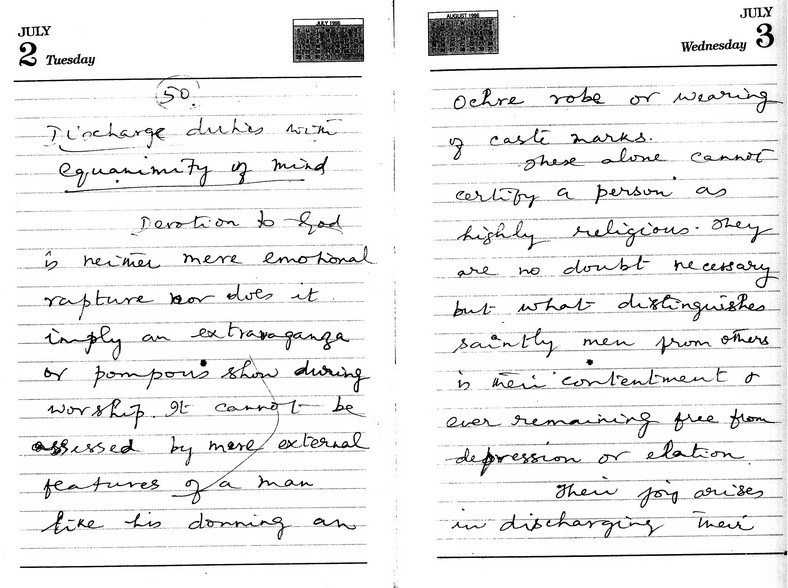 JULY
2 Tuesday
JULY 1996
50.
Discharge duties with
equanimity of mind
Devotion to God
is neither mere emotional
rapture nor does it
imply an extravaganza
or pompous show during
worship. It cannot be
assessed by mere external
features of a man
like his donning an
AUGUST 1996
JULY
Wednesday 3
Ochre robe or wearing
of caste marks.
These alone cannot
certify a person as
highly religious. They
are no doubt necessary
but what distinguishes
saintly men from others
is their contentment &
ever remaining free from
depression or elation
Their joy arises
in discharging their